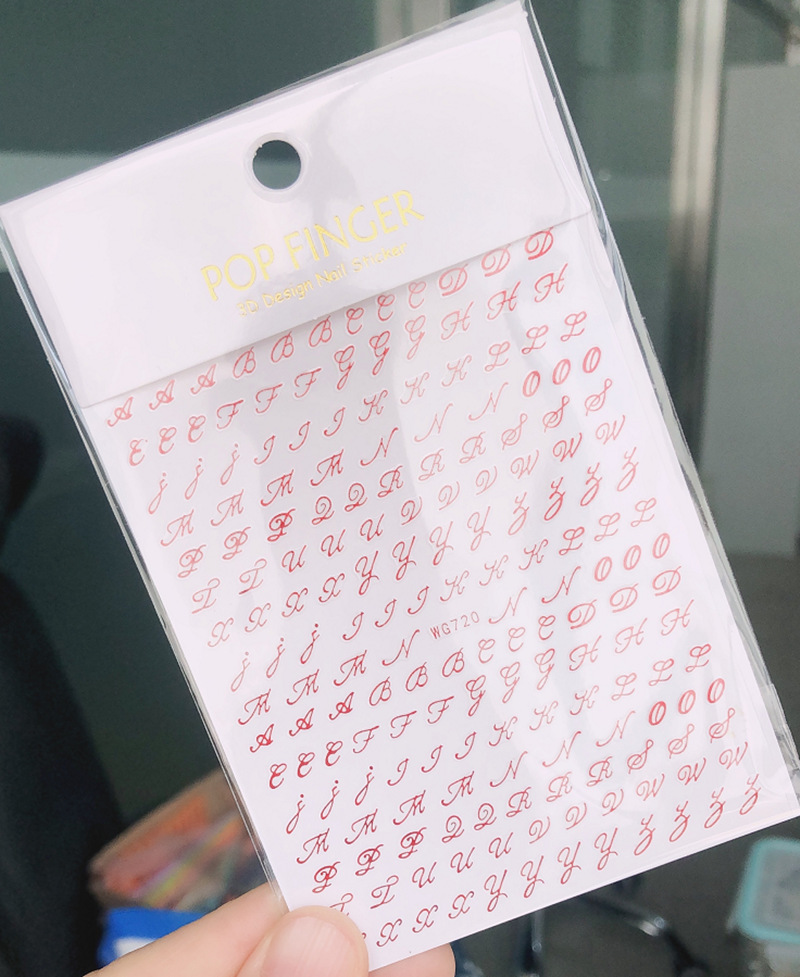 POP FINGER
3D Design Nail Sticker
A A A B B B C C C D D D
E E E F F F G G G H H H
j j j I I I K K K L L L
M M M M N N N O O O
P P P Q Q R R R S S S
T T U U U V V V W W W
X X X X Y Y Y Y Z Z Z Z
j j j I I I K K K L L L
M M M N WG720 N N O O O
A A A B B B C C C D D D
E E E F F F G G G H H H
j j j I I I K K K L L L
M M M M N N N O O O
P P P Q Q R R R S S S
T T U U U V V V W W W
X X X Y Y Y Y Z Z Z Z